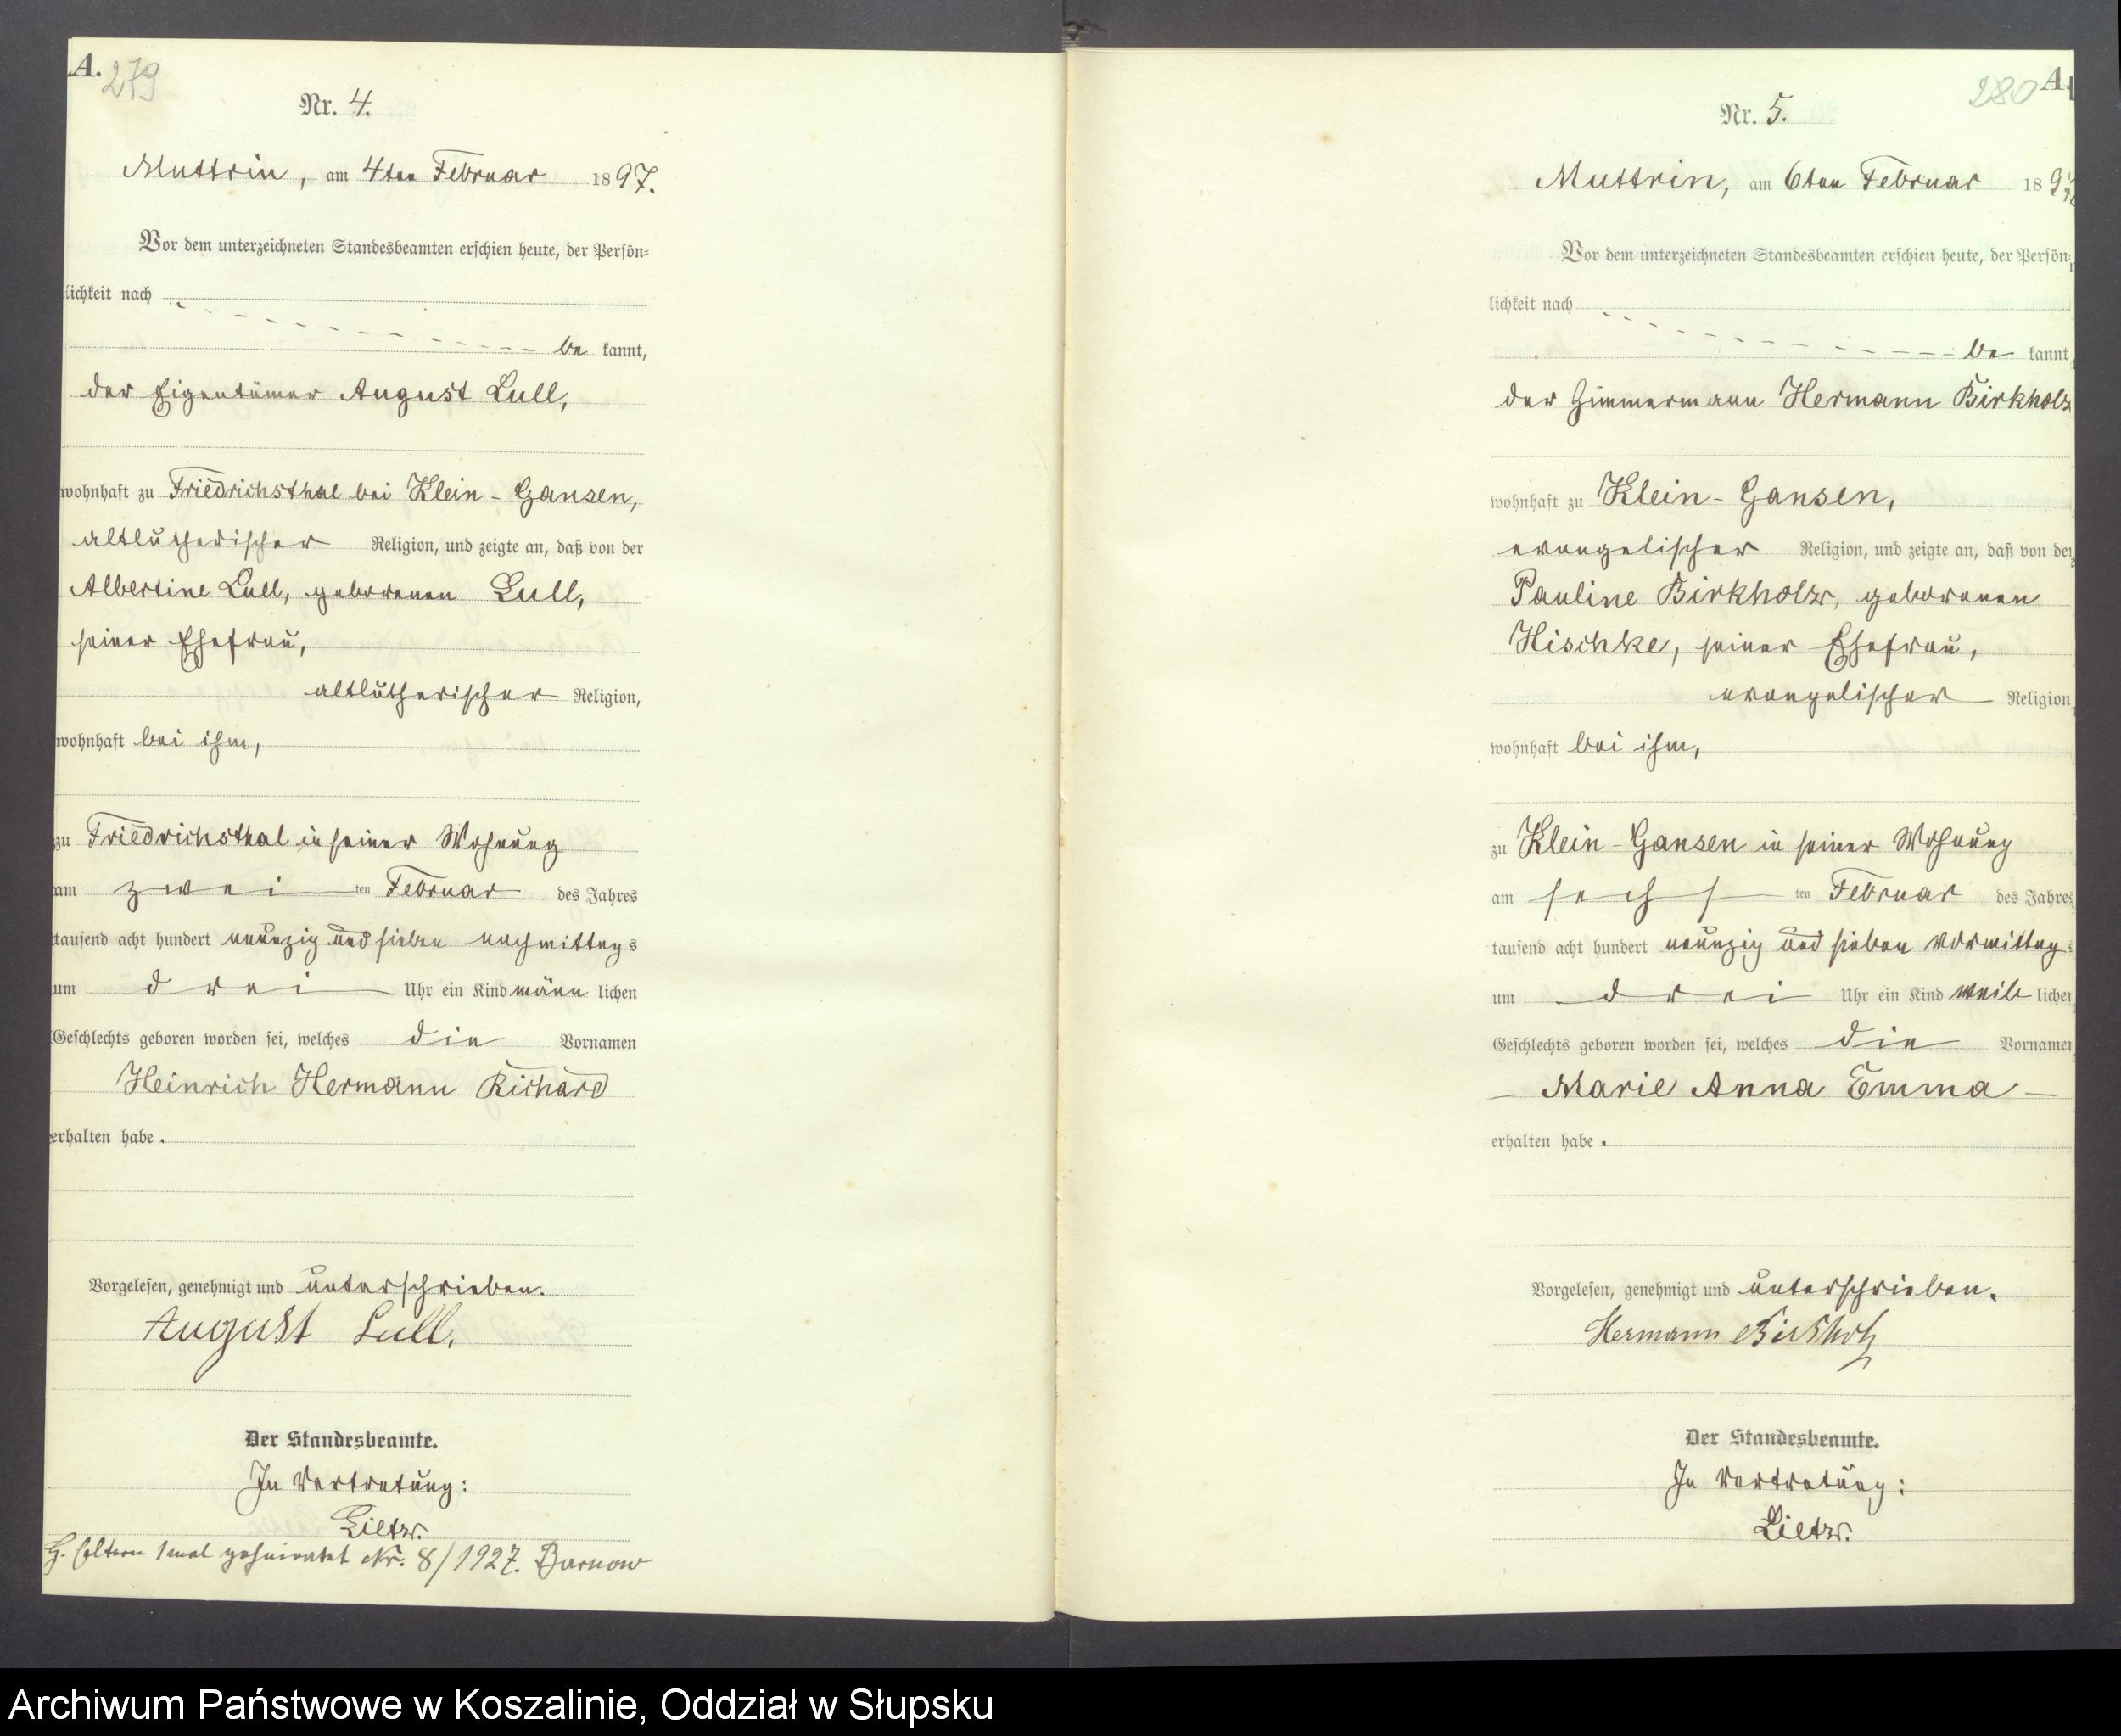 A. 279
Nr. 4.
Muttrin, am 4ten Februar 1897.
Vor dem unterzeichneten Standesbeamten erschien heute, der Persön-
lichkeit nach
be kannt,
der Eigentümer August Lull,
wohnhaft zu Friedrichsthal bei Klein-Gansen,
altlutherischer Religion, und zeigte an, daß von der
Albertine Lull, geborenen Lull,
seiner Ehefrau,
altlutherischer Religion,
wohnhaft bei ihm,
zu Friedrichsthal in seiner Wohnung
am zwei ten Februar des Jahres
tausend acht hundert neunzig und sieben nachmittags
um drei Uhr ein Kind männ lichen
Geschlechts geboren worden sei, welches die Vornamen
Heinrich Hermann Richard
erhalten habe.
Vorgelesen, genehmigt und unterschrieben.
August Lull.
Der Standesbeamte.
In Vertretung:
Lietz.
1mal geheiratet Nr. 8/1927. Barnow
280 A.
Nr. 5.
Muttrin, am 6ten Februar 1897
Vor dem unterzeichneten Standesbeamten erschien heute, der Persön-
lichkeit nach
be kannt,
der Zimmermann Hermann Birkholz
wohnhaft zu Klein-Gansen,
evangelischer Religion, und zeigte an, daß von der
Pauline Birkholz, geborenen
Hischke, seiner Ehefrau,
evangelischer Religion
wohnhaft bei ihm,
zu Klein-Gansen in seiner Wohnung
am sechs ten Februar des Jahres
tausend acht hundert neunzig und sieben vormittags
um drei Uhr ein Kind weib lichen
Geschlechts geboren worden sei, welches die Vornamen
Marie Anna Emma
erhalten habe.
Vorgelesen, genehmigt und unterschrieben.
Hermann Birkholz
Der Standesbeamte.
In Vertretung:
Lietz.
Archiwum Państwowe w Koszalinie, Oddział w Słupsku